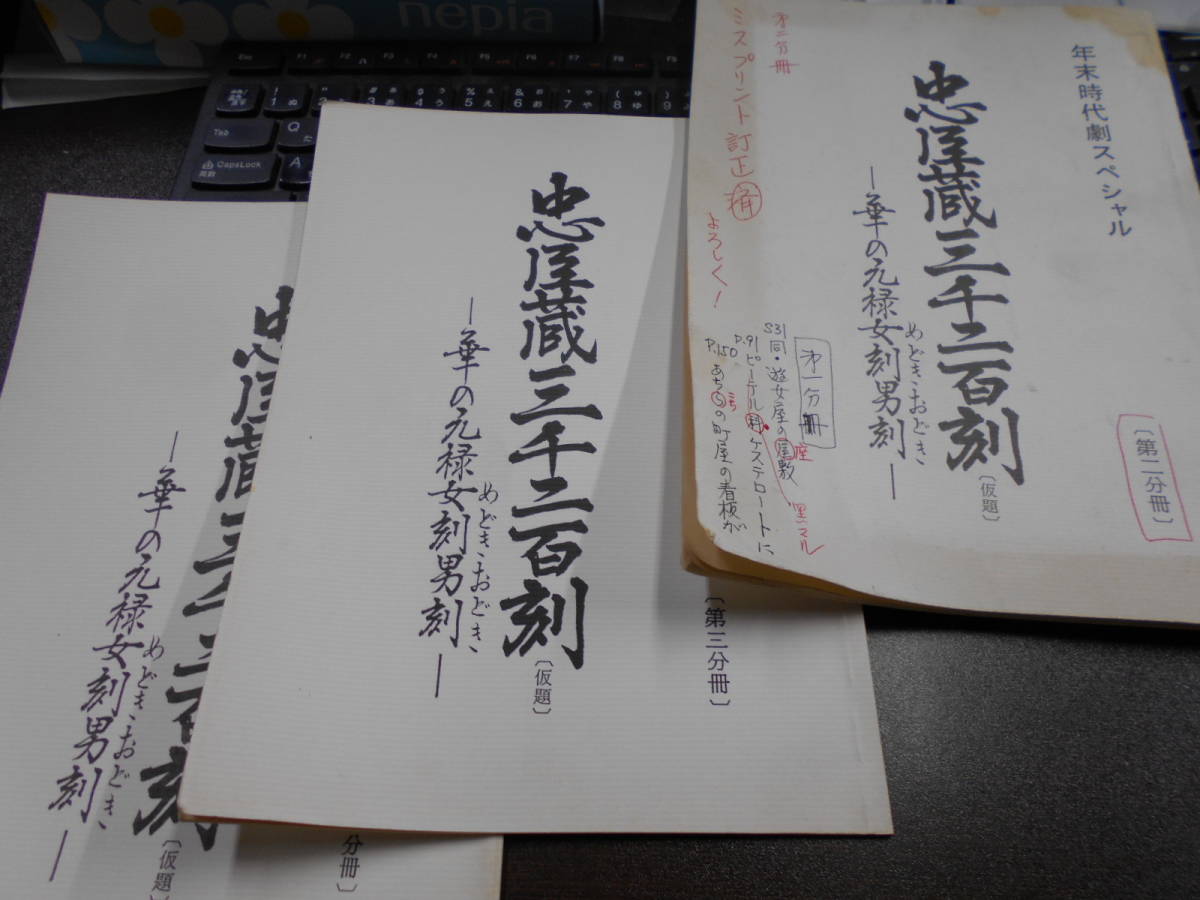 年末時代劇スペシャル
忠臣蔵三千二百刻
〔仮題〕
―華の元禄女刻男刻―
めどき・おどき
〔第二分冊〕
第二分冊
ミスプリント訂正
よろしく!
第一分冊
S31同・遊女屋の屋敷
座
P.91ピーテル・ケステロートに
黒マル
P.150あちこちの町屋の看板が
忠臣蔵三千二百刻
〔仮題〕
―華の元禄女刻男刻―
めどき・おどき
〔第三分冊〕
忠臣蔵三千二百刻
〔仮題〕
―華の元禄女刻男刻―
めどき・おどき
分冊〕
nepia
Esc
F1
F2
F3
F4
F5
F6
F7
F8
F9
Tab
Q
CapsLock
英数
A